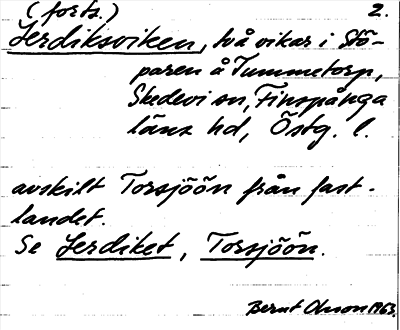 (forts.) 2.
Jerdiksviken, två vikar i Stö-
paren å Tummetorp,
Skedevi sn, Finspånga
läns hd, Östg. l.
avskilt Torsjöön från fast-
landet.
Se Jerdiket, Torsjöön.
Bernt Olsson 1963.